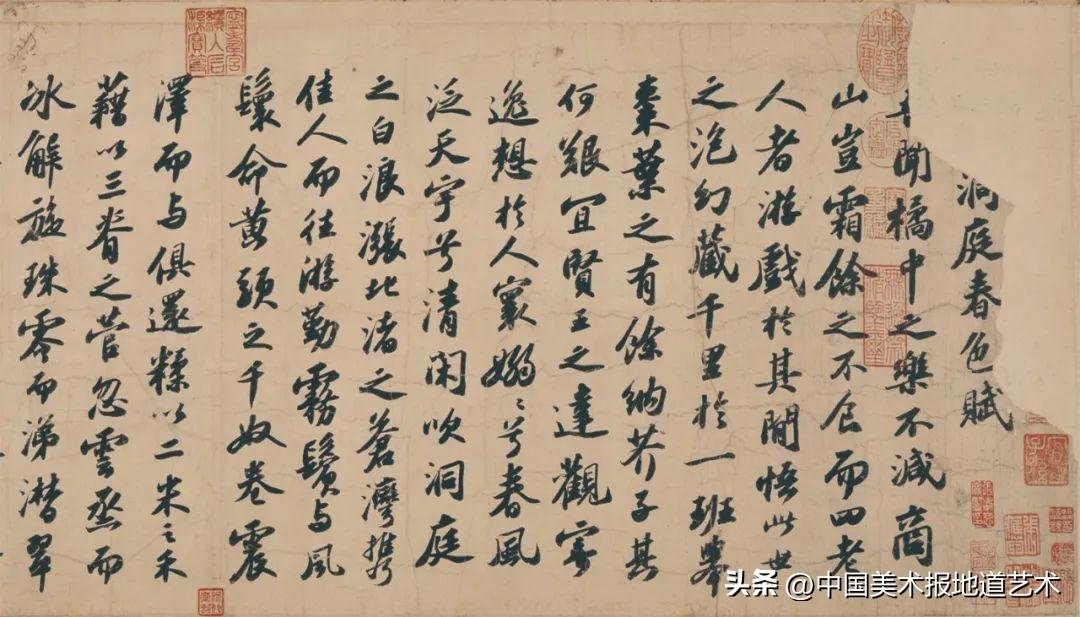 洞庭春色賦
聞橘中之樂不減商
山豈霜餘之不食而四老
人者游戲於其間悟此世
之泡幻藏千里於一班舉
棗葉之有餘納芥子其
何艱宜賢王之達觀寄
逸想於人寰嫋〻兮春風
泛天宇兮清閑吹洞庭
之白浪漲北渚之蒼灣攜
佳人而往游勤霧鬢与風
鬟命黃頭之千奴卷震
澤而与俱還糅以二米之禾
藉以三脊之菅忽雲烝而
冰解旋珠零而涕潸翠
头条 @中国美术报地道艺术